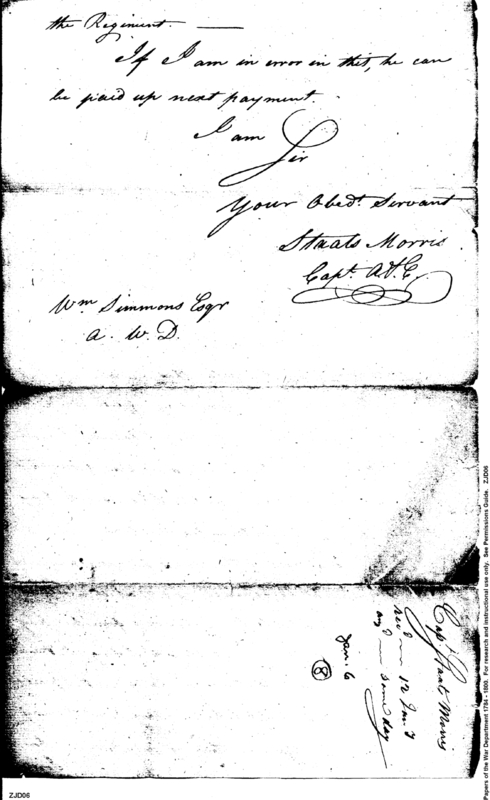 the Regiment. —
If I am in error in this, he can
be paid up next payment.
I am
Sir
Your Obedt. Servant
Staats Morris
Capt. A&E.
Wm Simmons Esqr
a. W. D.
Capt. Staats Morris
Recd 12 Jany
ansd same day
Jan. 6
8
Papers of the War Department 1784 - 1800. For research and instructional use only. See Permissions Guide. ZJD06
ZJD06